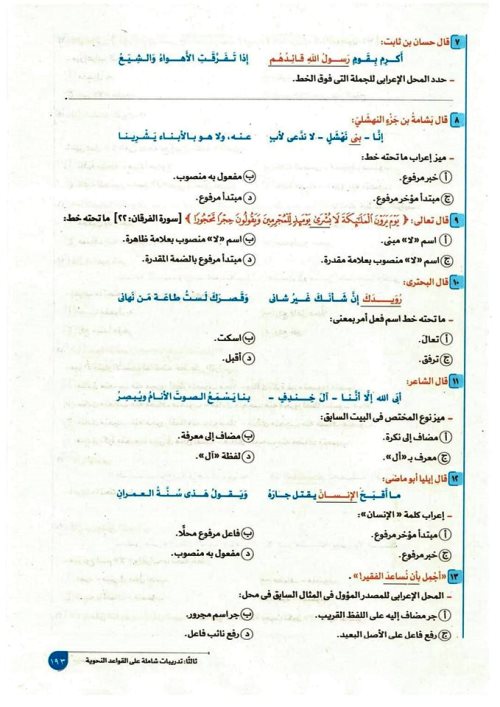 ٧ قال حسان بن ثابت:
أكرم بقوم رسول الله قائدهم إذا تفرقت الأهواء والشيع
– حدد المحل الإعرابى للجملة التى فوق الخط.
٨ قال بشامة بن جزء النهشلى:
إنا – بنى نهشل – لا ندعى لأب عنه، ولا هو بالأبناء يشرينا
– ميز إعراب ما تحته خط:
أ خبر مرفوع. ب مفعول به منصوب.
ج مبتدأ مؤخر مرفوع. د مبتدأ مرفوع.
٩ قال تعالى: ﴿ يَوْمَ يَرَوْنَ الْمَلَٰٓئِكَةَ لَا بُشْرَىٰ يَوْمَئِذٍ لِّلْمُجْرِمِينَ وَيَقُولُونَ حِجْرًا مَّحْجُورًا ﴾ [سورة الفرقان: ٢٢] ما تحته خط:
أ اسم «لا» مبنى. ب اسم «لا» منصوب بعلامة ظاهرة.
ج اسم «لا» منصوب بعلامة مقدرة. د مبتدأ مرفوع بالضمة المقدرة.
١٠ قال البحترى:
رويدك إن شأنك غير شانى وقصرك لست طاعة من نهانى
– ما تحته خط اسم فعل أمر بمعنى:
أ تعالَ. ب اسكت.
ج ترفق. د أقبل.
١١ قال الشاعر:
أبى الله إلا أننا – آل خندف – بنا يسمع الصوت الأنام ويبصر
– ميز نوع المختص فى البيت السابق:
أ مضاف إلى نكرة. ب مضاف إلى معرفة.
ج معرف بـ «أل». د لفظة «آل».
١٢ قال إيليا أبو ماضى:
ما أقبح الإنسان يقتل جاره ويقول هذى سنة العمران
– إعراب كلمة «الإنسان»:
أ مبتدأ مؤخر مرفوع. ب فاعل مرفوع محلًا.
ج خبر مرفوع. د مفعول به منصوب.
١٣ «أجمل بأن نساعد الفقير!».
– المحل الإعرابى للمصدر المؤول فى المثال السابق فى محل:
أ جر مضاف إليه على اللفظ القريب. ب جر اسم مجرور.
ج رفع فاعل على الأصل البعيد. د رفع نائب فاعل.
ثالثًا: تدريبات شاملة على القواعد النحوية ١٩٣